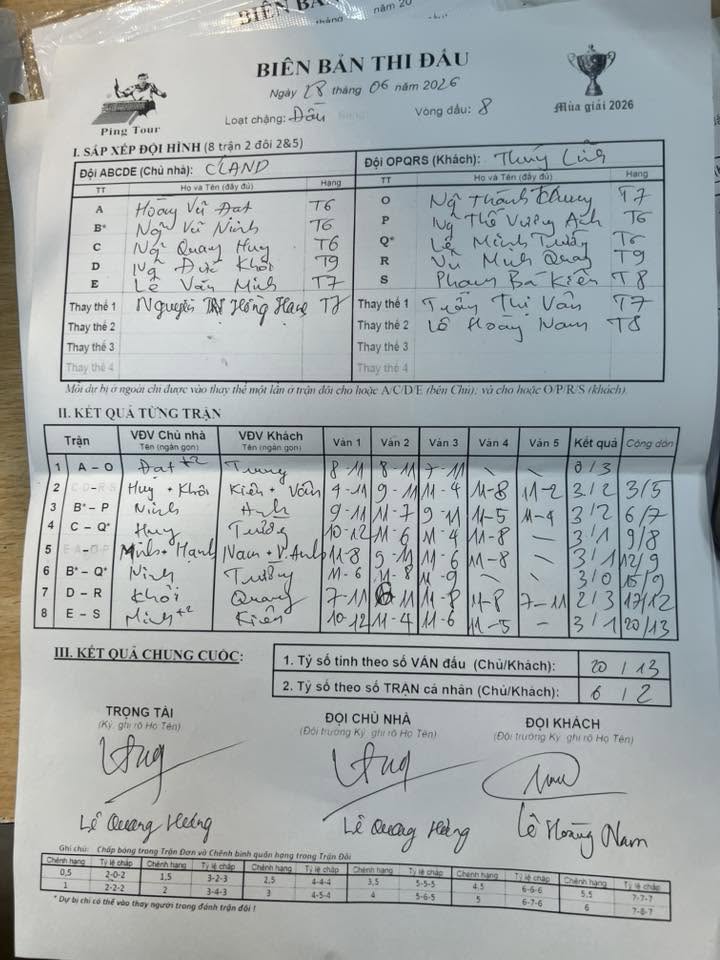 BIÊN BẢN THI ĐẤU
Ngày 28 tháng 06 năm 2026
Ping Tour
Loại chặng: Đấu
Vòng đấu: 8
Mùa giải 2026
I. SẮP XẾP ĐỘI HÌNH (8 trận 2 đôi 2&5)
Đội ABCDE (Chủ nhà): CLAND Đội OPQRS (Khách): Thúy
TT Họ và Tên (đầy đủ) Hạng TT Họ và Tên (đầy đủ) Hạng
A Hoàng Vũ Đạt T6 O Ng Thành Chung T7
B* Ng Vũ Ninh T6 P Ng Thế Vương Anh T6
C Ng Quang Huy T6 Q* Lê Minh Tưởng T6
D Ng Đức Khôi T9 R Vũ Minh Quang T9
E Lê Văn Minh T7 S Phạm Bá Kiên T8
Thay thế 1 Nguyễn Thị Hồng Hạnh Thay thế 1 Trần Thị Vân T7
Thay thế 2 Thay thế 2 Lê Hoàng Nam T8
Thay thế 3 Thay thế 3
Thay thế 4 Thay thế 4
Mỗi dự bị ở ngoài chỉ được vào thay thế một lần ở trận đôi cho hoặc A/C/D/E (bên Chủ); và cho hoặc O/P/R/S (khách).
II. KẾT QUẢ TỪNG TRẬN
Trận VĐV Chủ nhà Tên (ngắn gọn) VĐV Khách Tên (ngắn gọn) Ván 1 Ván 2 Ván 3 Ván 4 Ván 5 Kết quả Cộng dồn
1 A – O Đạt +2 Trung 8-11 8-11 7-11 \ \ 0/3
2 Huy + Khôi Kiên + Vân 9-11 11-4 11-8 11-2 3/2 3/5
3 B* – P Ninh Anh 9-11 11-7 9-11 11-5 11-4 3/2 6/7
4 C – Q* Huy Tưởng 10-12 11-6 11-4 11-8 – 3/1 9/8
5 Minh + Hạnh Nam + V.Anh 11-8 9-11 11-6 11-8 – 3/1 12/9
6 B* – Q* Ninh Tưởng 11-6 11-8 11-9 \ \ 3/0 15/9
7 D – R Khôi Quang 7-11 11-8 11-8 7-11 2/3 17/12
8 E – S Minh +2 Kiên 10-12 11-4 11-6 11-5 – 3/1 20/13
III. KẾT QUẢ CHUNG CUỘC:
1. Tỷ số tính theo số VÁN đấu (Chủ/Khách): 20 / 13
2. Tỷ số theo số TRẬN cá nhân (Chủ/Khách): 6 / 2
TRỌNG TÀI ĐỘI CHỦ NHÀ ĐỘI KHÁCH
(Ký, ghi rõ Họ Tên) (Đội trưởng Ký, ghi rõ Họ Tên) (Đội trưởng Ký, ghi rõ Họ Tên)
Lê Quang Hưng Lê Quang Hưng Lê Hoàng Nam
Ghi chú: Chấp bóng trong Trận Đơn và Chênh bình quân hạng trong Trận Đôi
Chênh hạng Tỷ lệ chấp Chênh hạng Tỷ lệ chấp Chênh hạng Tỷ lệ chấp Chênh hạng Tỷ lệ chấp Chênh hạng Tỷ lệ chấp Chênh hạng Tỷ lệ chấp
0,5 2-0-2 1,5 3-2-3 2,5 4-4-4 3,5 5-5-5 4,5 6-6-6 5,5 7-7-7
1 2-2-2 2 3-4-3 3 4-5-4 4 5-6-5 5 6-7-6 6 7-8-7
* Dự bị chỉ có thể vào thay người trong đánh trận đôi !